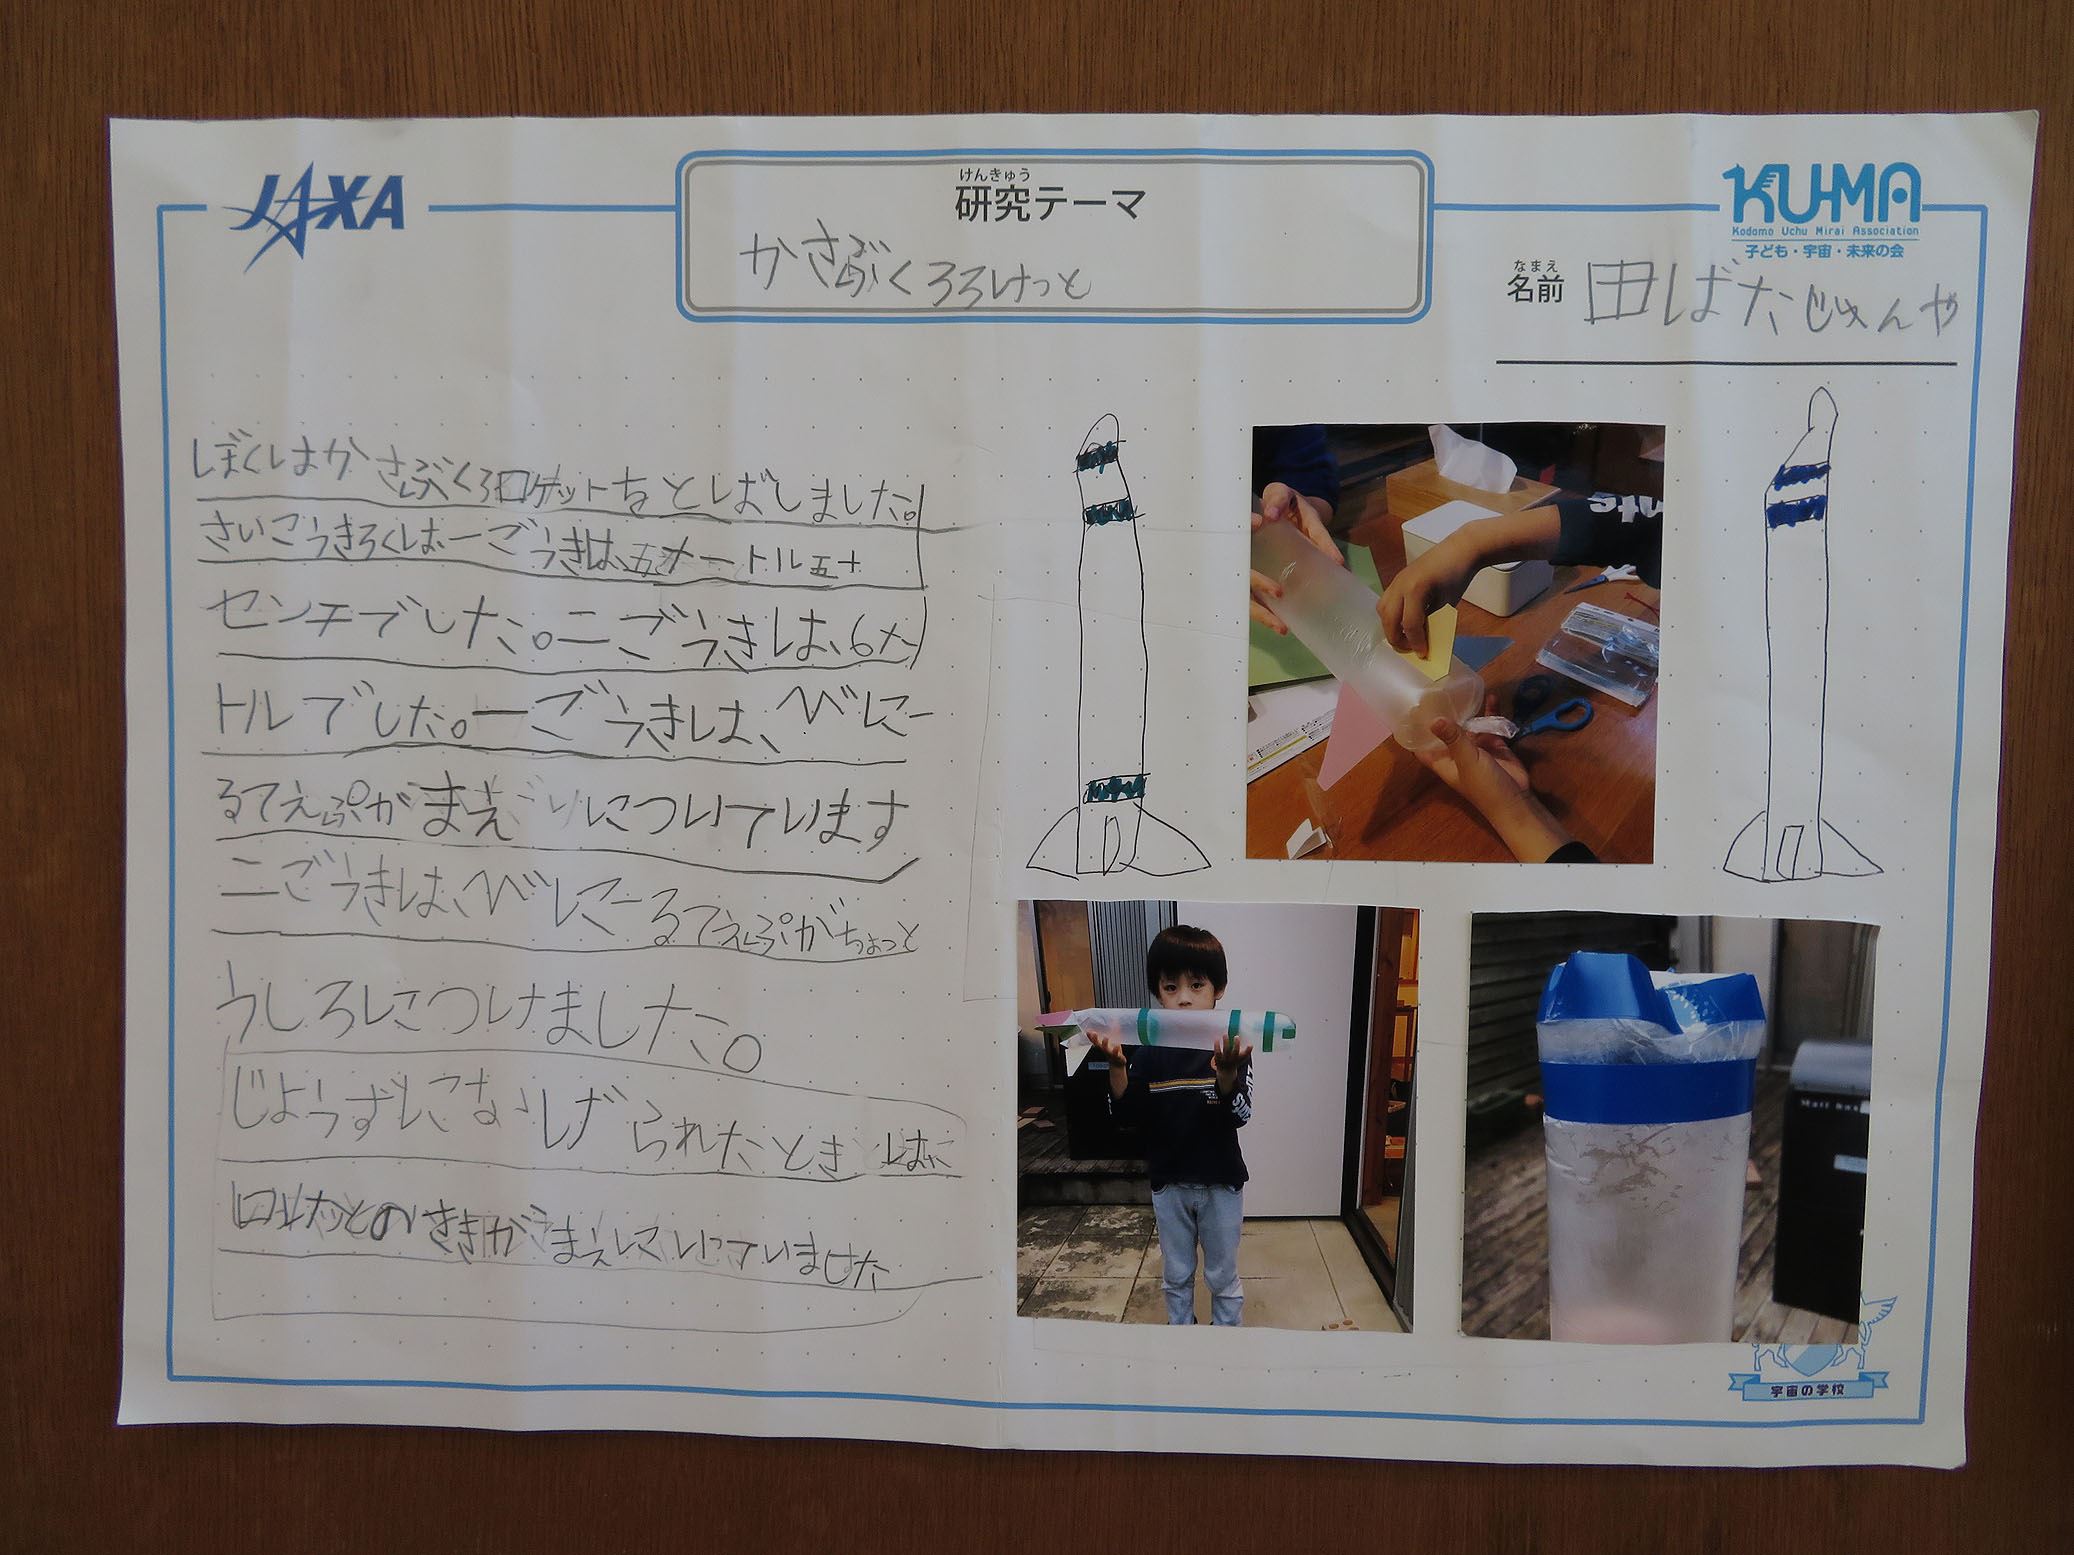 JAXA
けんきゅう
研究テーマ
かさぶくろろけっと
KU-MA
Kodomo Uchu Mirai Association
子ども・宇宙・未来の会
なまえ
名前 田ばたじゅんや
ぼくはかさぶくろロケットをとばしました。
さいこうきろくは一ごうきは、五メートル五十
センチでした。二ごうきは、6メー
トルでした。一ごうきは、びにー
るてえぷがまえについています
二ごうきは、びにーるてえぷがちょっと
うしろにつけました。
じょうずになげられたとき
のさきがまえにていました
Mail Box
宇宙の学校